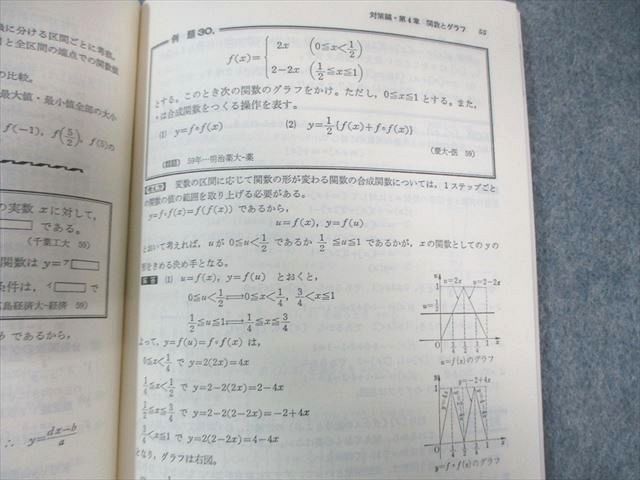 に分ける区間ごとに考察。
と全区間の端点での関数値
の比較。
最大値・最小値全部の大小
f(-1), f(5/2), f(5)の
の実数 x に対して,
である。
(千葉工大 59)
関数は y=ア
条件は, イ で
島経済大-経済 59)
であるから,
∴ y=(dx-b)/a
対策編・第4章 関数とグラフ 55
例題30.
f(x)={ 2x (0≦x<1/2)
2-2x (1/2≦x≦1)
とする。このとき次の関数のグラフをかけ。ただし, 0≦x≦1 とする。また,
∘は合成関数をつくる操作を表す。
(1) y=f∘f(x) (2) y=1/2{f(x)+f∘f(x)}
(類題) 59年…明治薬大-薬 (慶大-医 59)
考え方 変数の区間に応じて関数の形が変わる関数の合成関数については, 1ステップごと
の関数の値の範囲を取り上げる必要がある。
y=f∘f(x)=f(f(x)) であるから,
u=f(x), y=f(u)
とおいて考えれば, u が 0≦u<1/2 であるか 1/2≦u≦1 であるかが, x の関数としての y の
形をきめる決め手となる。
解答 (1) u=f(x), y=f(u) とおくと,
0≦u<1/2⟺0≦x<1/4, 3/4<x≦1
1/2≦u≦1⟺1/4≦x≦3/4
よって, y=f(u)=f∘f(x) は,
0≦x<1/4 で y=2(2x)=4x
1/4≦x<1/2 で y=2-2(2x)=2-4x
1/2≦x≦3/4 で y=2-2(2-2x)=-2+4x
3/4<x≦1 で y=2(2-2x)=4-4x
となり, グラフは右図。
u=2x u=2-2x
u=1/2
0 1/4 1/2 3/4 1 x
u=f(x)のグラフ
y=-2+4x
0 1/4 1/2 3/4 1 x
y=f∘f(x)のグラフ